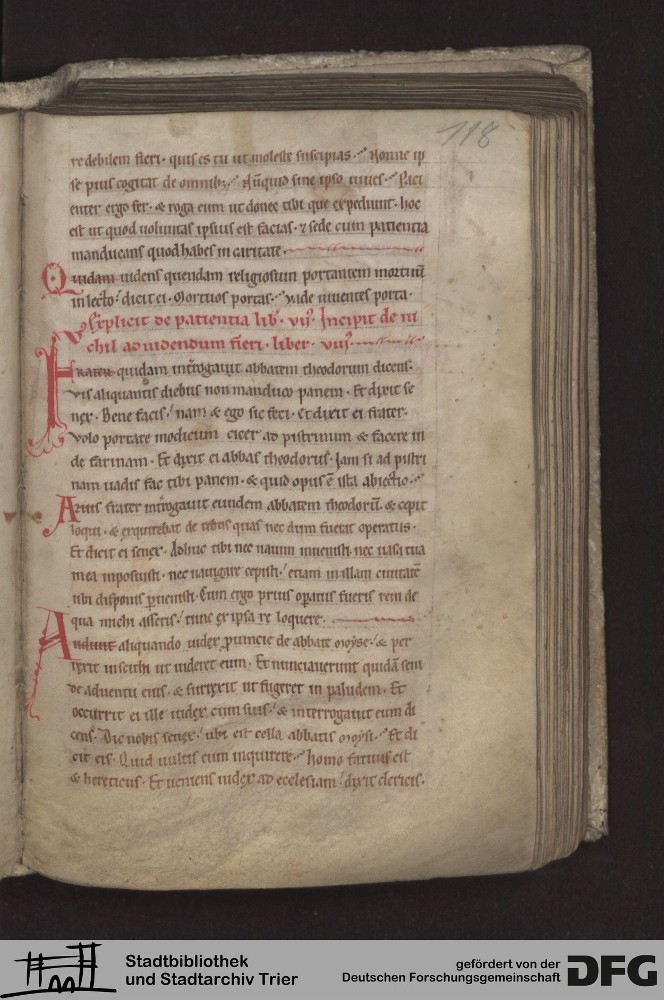 118
redebilem fieri· quis es tu ut moleste suscipias· Nonne ip
se prius cogitat de omnibꝫ· Nūquid sine ipso uiues· Paci
enter ergo fer· & roga eum ut donec tibi que expediunt· hoc
est ut quod uoluntas ipsius est facias· ⁊ sede cum patientia
manducans quod habes in caritate·
Quidam uidens quendam religiosum portantem mortuū
in lecto· dicit ei· Mortuos portas· Vade uiuentes porta·
Explicit de patientia lib̄· vıȷ· Incipit de ni
chil ad uidendum fieri· liber· vııȷ·
Frater quidam int̄rogauit abbatem theodorum dicens·
Vis aliquantis diebus non manduco panem· Et dixit se
nex· Bene facis· nam & ego sic feci· Et dixit ei frater·
Volo portare modicum cicer ad pistrinum & facere in
de farinam· Et dixit ei abbas theodorus· Iam si ad pistri
num uadis fac tibi panem· & quid opus ē ista abiectio·
Alius frater int̄rogauit eundem abbatem theodorū· & cepit
loqui· & exquirebat de rebus quas nec dum fuerat operatus·
Et dicit ei senex· Adhuc tibi nec nauim inuenisti· nec uasa tua
in ea inposuisti· nec nauigare cepisti· etiam in illam ciuitatē
ubi disponis ꝑuenisti· Cum ergo prius oꝑatus fueris rem de
qua michi asseris· tunc ex ipsa re loquere·
Audiuit aliquando iudex ꝓuincie de abbate moyse· & per
rexit in scithi ut uideret eum· Et nunciauerunt quidā seni
de aduentu eius· & surrexit ut fugeret in paludem· Et
occurrit ei ille iudex cum suis· & interrogauit eum di
cens· Dic nobis senex· ubi est cella abbatis moysi· Et di
cit eis· Quid uultis eum inquirere· homo fatuus est
& hereticus· Et ueniens iudex ad ecclesiam· dixit clericis·
Stadtbibliothek
und Stadtarchiv Trier
gefördert von der
Deutschen Forschungsgemeinschaft
DFG